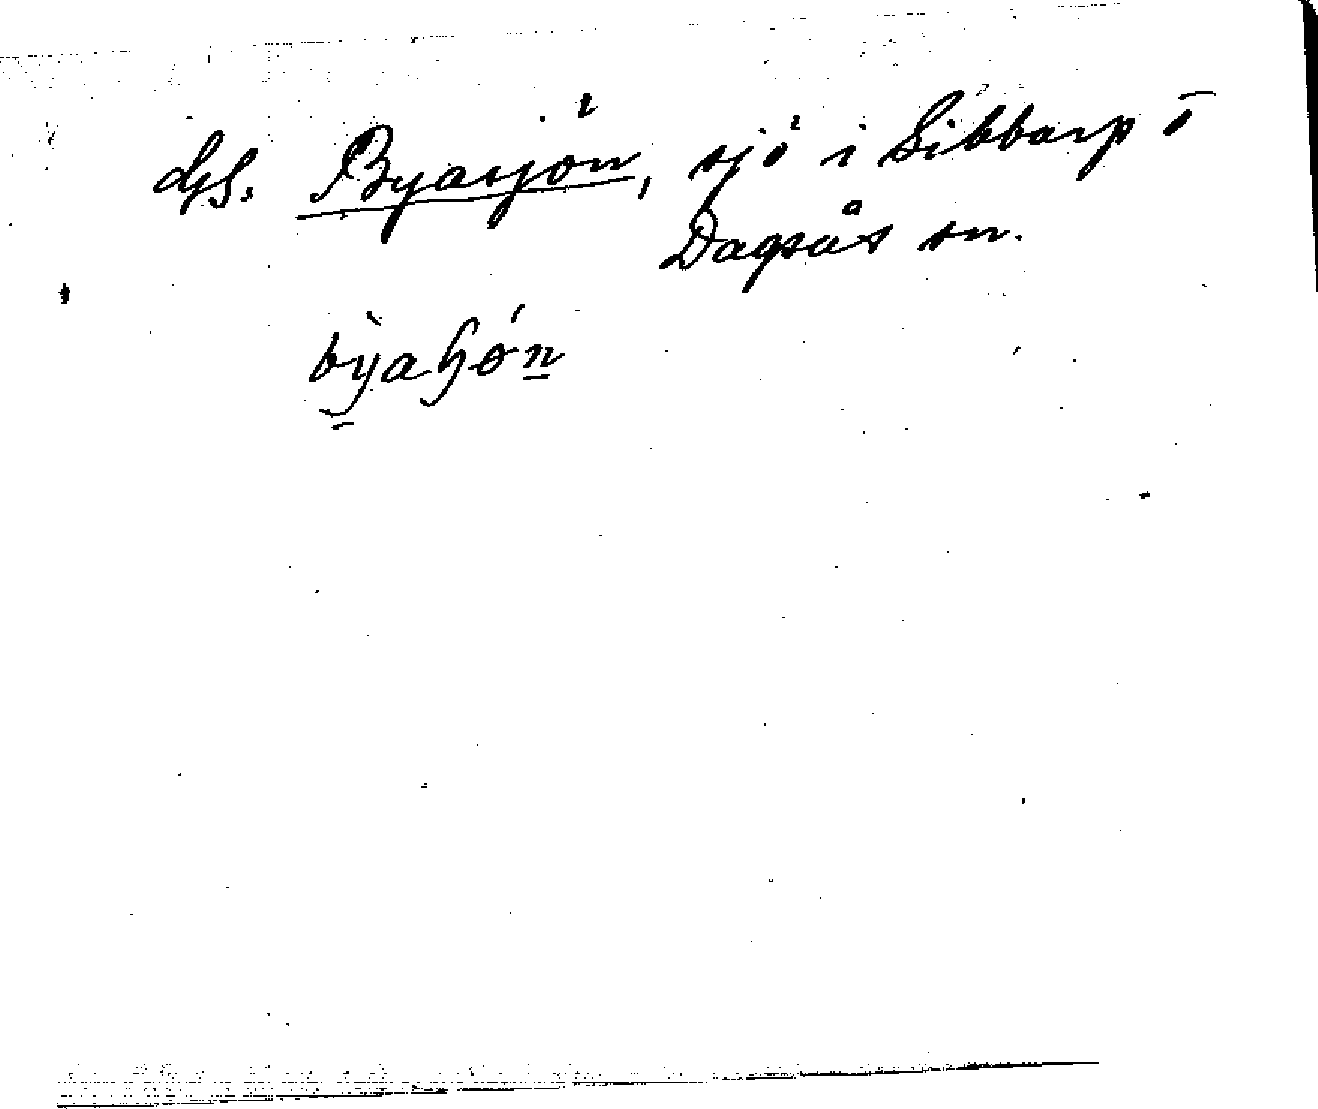 Byasjön, sjö i Sibbarp o
Dagsås sn.